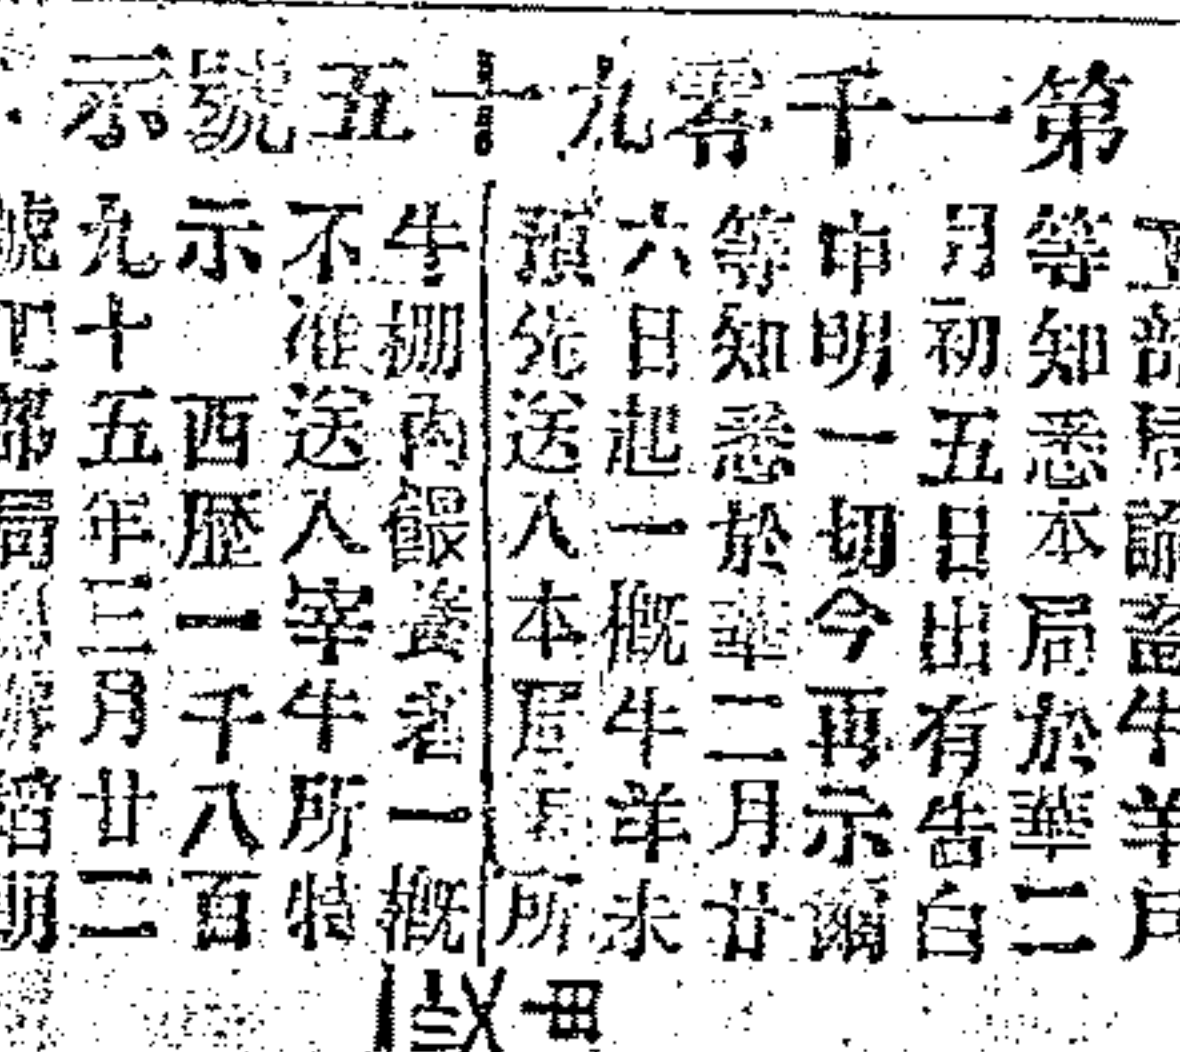 第一千零九十五號示
工部局諭諮牛羊戶
等知悉本局於華二
月初五日出有告白
申明一切今再示爾
等知悉於華二月廿
六日起一概牛羊未
預先送入本局
所
牛棚內餵養者一概
不准送入宰牛所特
示 西歷一千八百
九十五年三月廿二
號工部局